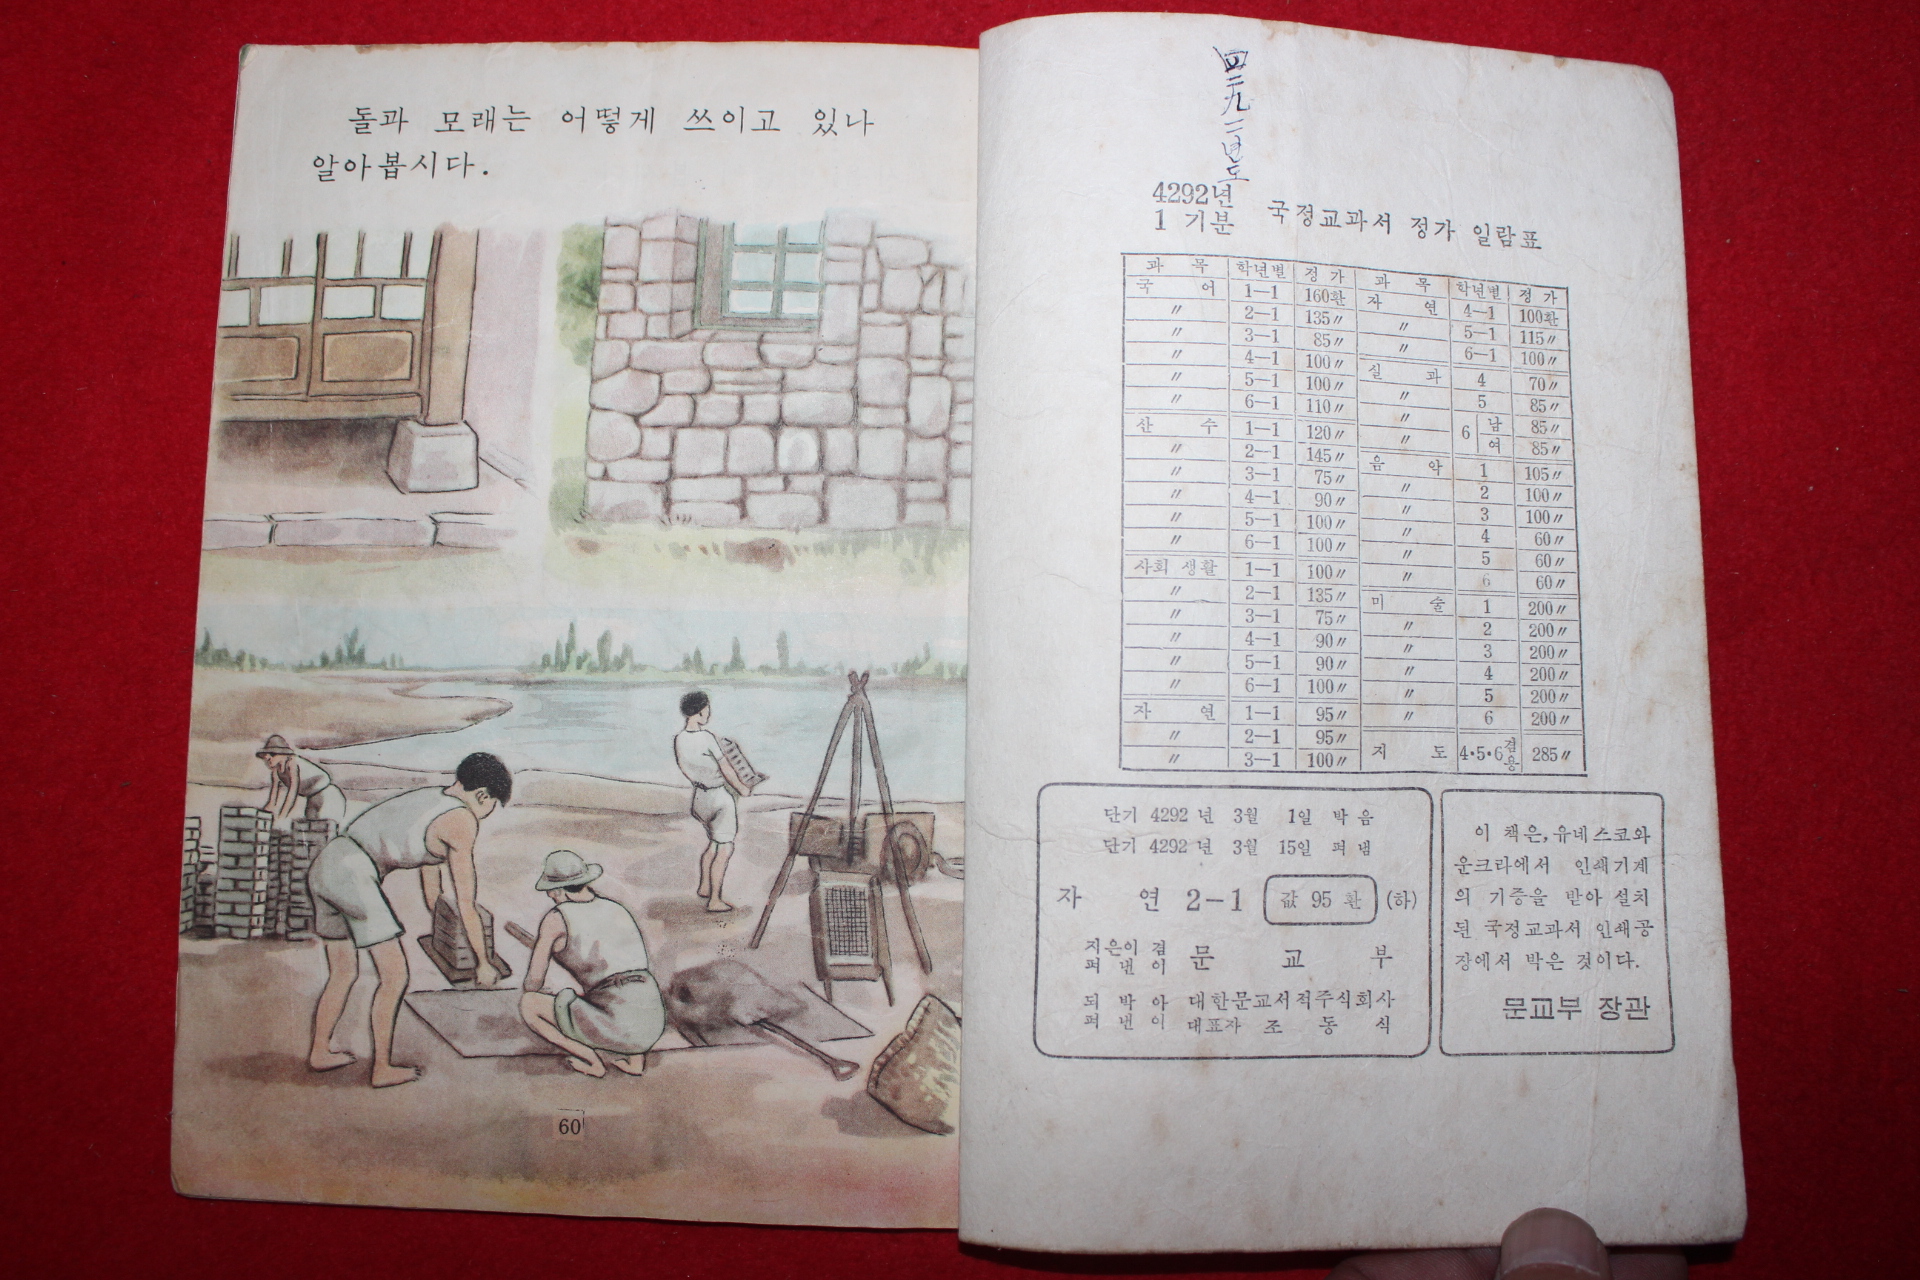 돌과 모래는 어떻게 쓰이고 있나
알아봅시다.
60
四二九二년도
4292년
1 기분
국정교과서 정가 일람표
과 목 학년별 정 가 과 목 학년별 정 가
국 어 1-1 160환 자 연 4-1 100환
〃 2-1 135〃 〃 5-1 115〃
〃 3-1 85〃 〃 6-1 100〃
〃 4-1 100〃 실 과 4 70〃
〃 5-1 100〃 〃 5 85〃
〃 6-1 110〃 〃 6 남 85〃
산 수 1-1 120〃 〃 여 85〃
〃 2-1 145〃 음 악 1 105〃
〃 3-1 75〃 〃 2 100〃
〃 4-1 90〃 〃 3 100〃
〃 5-1 100〃 〃 4 60〃
〃 6-1 100〃 〃 5 60〃
사회 생활 1-1 100〃 〃 6 60〃
〃 2-1 135〃 미 술 1 200〃
〃 3-1 75〃 〃 2 200〃
〃 4-1 90〃 〃 3 200〃
〃 5-1 90〃 〃 4 200〃
〃 6-1 100〃 〃 5 200〃
자 연 1-1 95〃 〃 6 200〃
〃 2-1 95〃 지 도 4·5·6겸용 285〃
〃 3-1 100〃
단기 4292 년 3월 1일 박 음
단기 4292 년 3월 15일 펴 냄
자 연 2-1 값 95 환 (하)
지은이 겸
펴 낸 이 문 교 부
되 박 아 대한문교서적주식회사
펴 낸 이 대표자 조 동 식
이 책은, 유네스코와
운크라에서 인쇄기계
의 기증을 받아 설치
된 국정교과서 인쇄공
장에서 박은 것이다.
문교부 장관